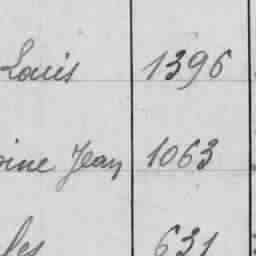 Louis 1396
oine Jean 1063
les 631